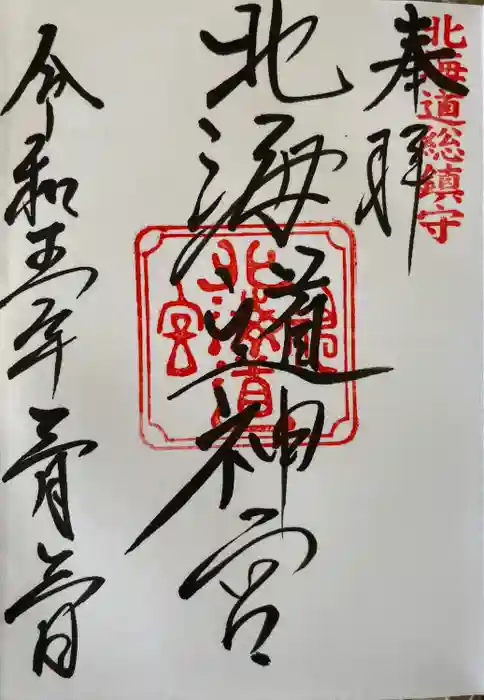 北海道総鎮守
奉拝
北海道神宮
北海道
宮
令和五年